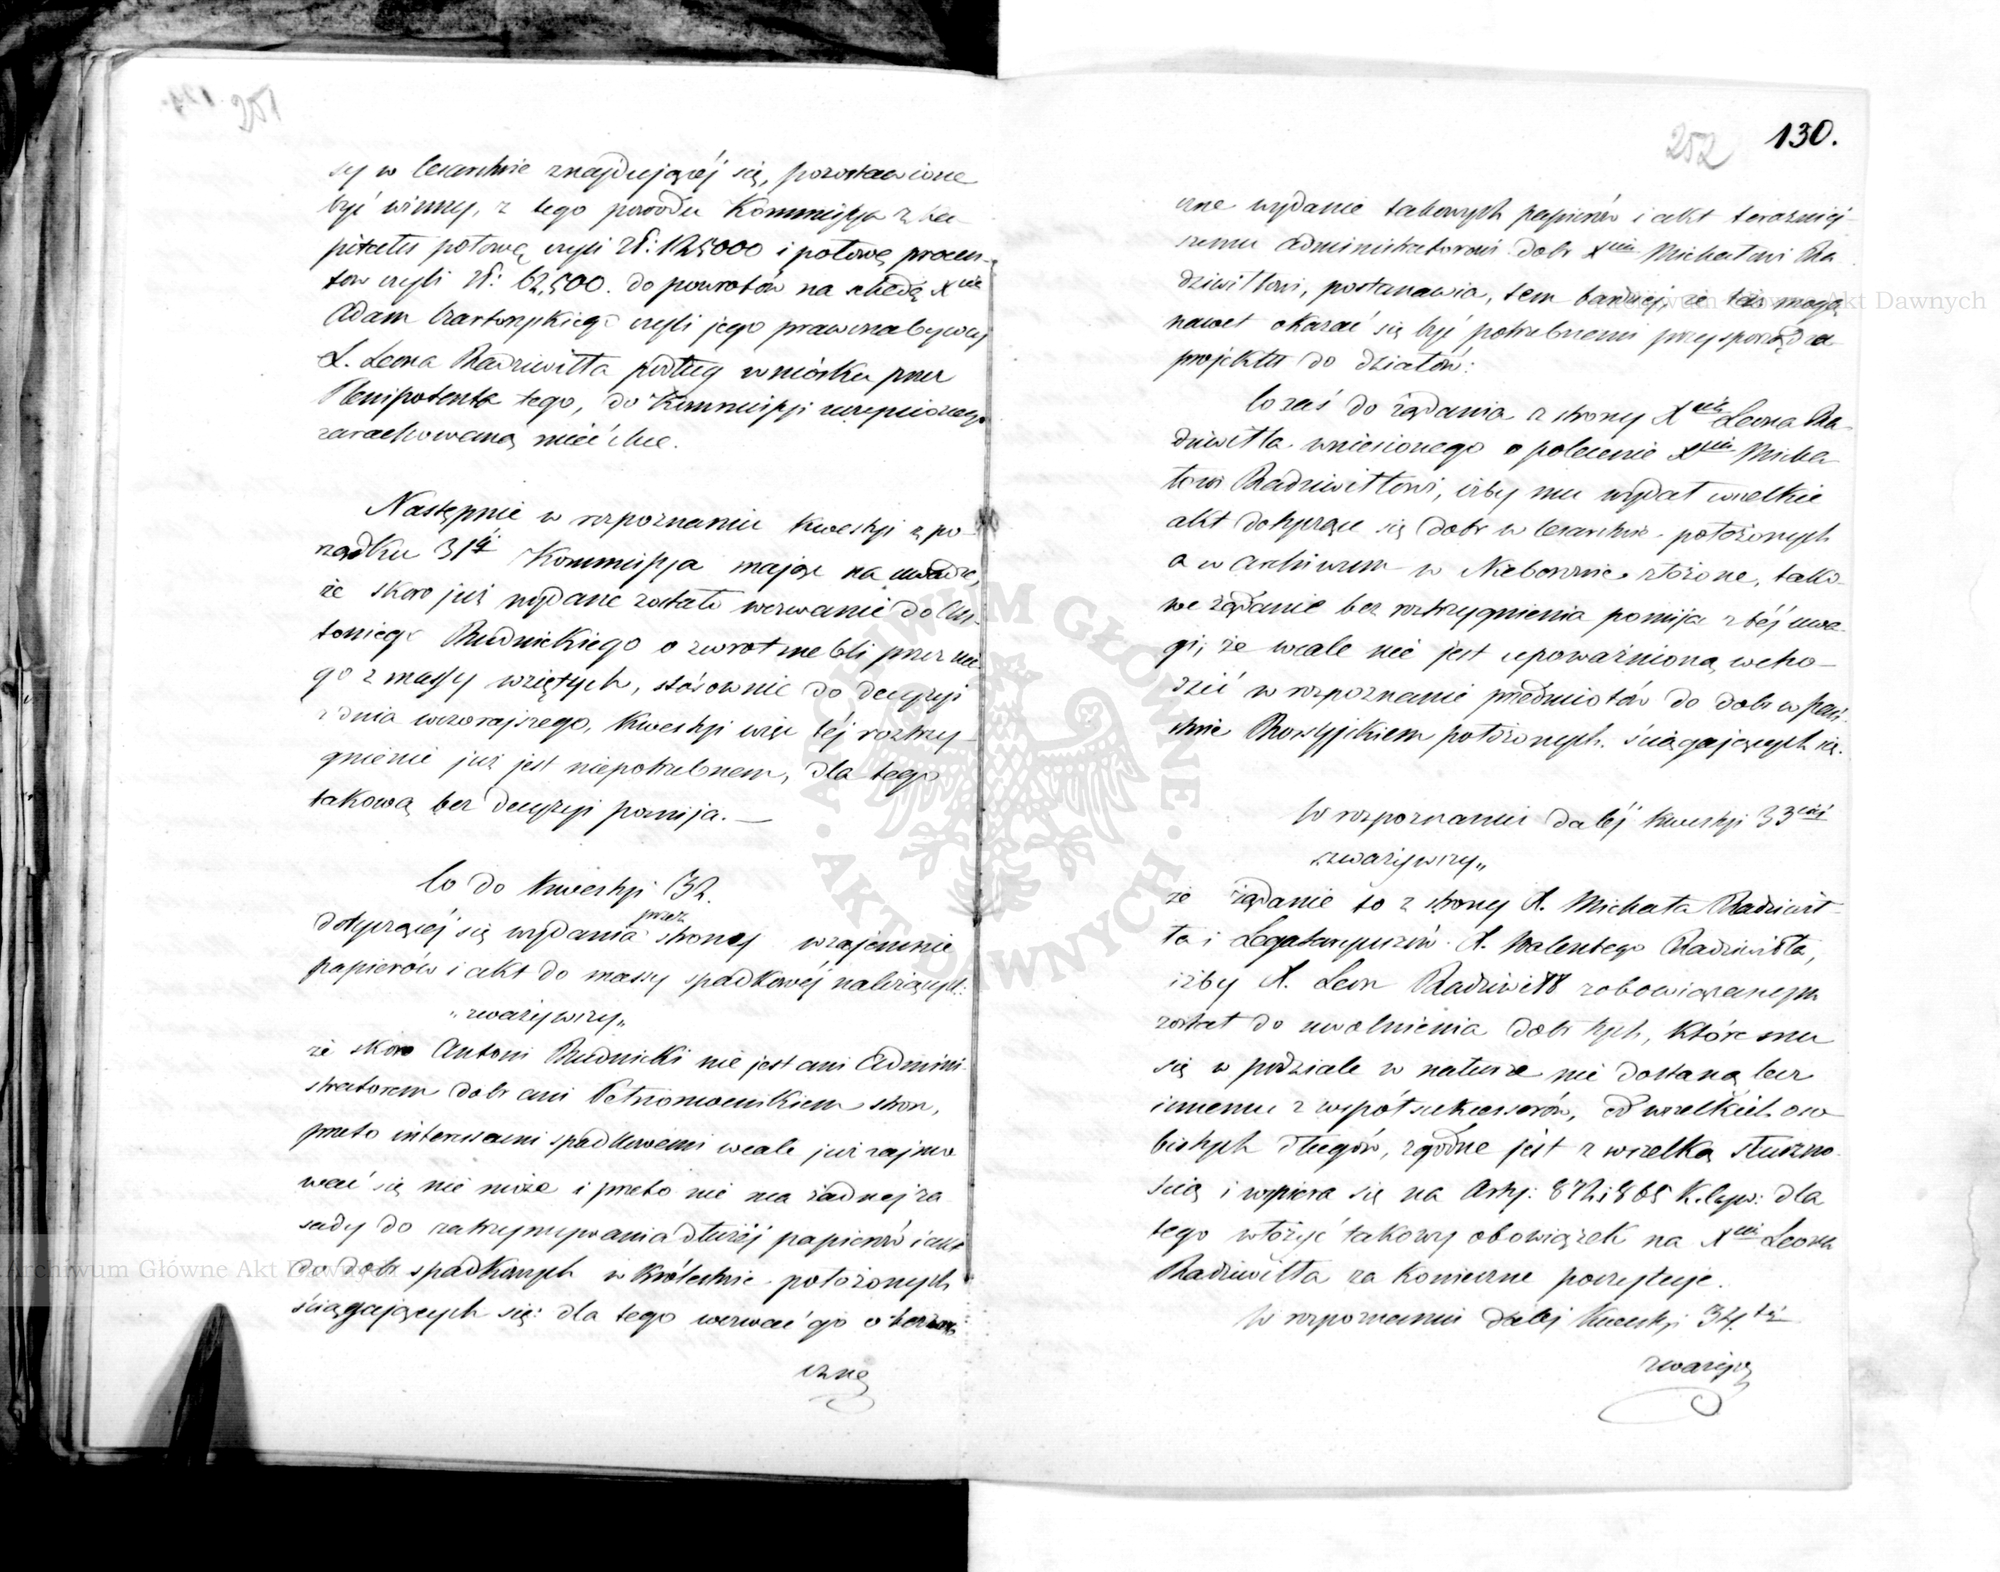 251
sy w Cesarstwie znajdującéj się, pozostawione
być winny, z tego powodu Kommissya z ka-
pitału połowę czyli Zł: 125000 i połowę procen-
tow czyli Zł: 62,500. do powrotów na schedę Xcia
Adam Czartoryskiego czyli jego prawonabywcy
X. Leona Radziwiłła podług wniosku przez
Plenipotenta tego, do Kommissyi uczynionego
zarachowaną mieć chce.
Następnie w rozpoznaniu kwestyi z po-
rządku 31éj Kommissya mając na uwadze,
że skoro już wydane zostało wezwanie do An-
toniego Rudnickiego o zwrot mebli przez nie-
go z massy wziętych, stósownie do decyzyi
z dnia wczorajszego, kwestyi więc téj roztrzy-
gnienie już jest niepotrzebnem, dla tego
takową bez decyzyi pomija. —
Co do kwestyi 32.
dotyczącéj się wydania przez strony wzajemnie
papierów i akt do massy spadkowéj należących:
„zważywszy„
że skoro Antoni Rudnicki nie jest ani Admini-
stratorem dóbr ani Pełnomocnikiem stron,
przeto interessami spadkowemi wcale już zajmo
wać się nie może i przeto nie ma żadnej za
sady do zatrzymywania dłużéj papierów i akt
do dóbr spadkowych w Królestwie położonych
ściągających się: dla tego wezwać go o
czne
252 130.
czne wydanie takowych papierów i akt teraźniej-
szemu Administratorowi dóbr Xciu Michałowi Ra
dziwiłłowi, postanawia, tem bardziej, że też mogą
nawet okazać się być potrzebnemi przy sporządza
projektu do działów:
Co zaś do żądania z strony Xcia Leona Ra-
dziwiłła wniesionego o polecenie Xciu Micha
łowi Radziwiłłowi, iżby mu wydał wszelkie
akt dotyczące się dóbr w Cesarstwie położonych
a w Archiwum w Nieborowie złożone, tako-
we żądanie bez roztrzygnienia pomija z téj uwa-
gi, że wcale nie jest upoważnioną wcho-
dzić w rozpoznanie przedmiotów do dóbr w Pań-
stwie Rossyjskiem położonych ściągających się.
W rozpoznaniu daléj kwestyi 33ciéj
„zważywszy„
że żądanie to z strony X. Michała Radziwił-
ła i Legataryuszów X. Walentego Radziwiłła,
iżby X. Leon Radziwiłł zobowiązanym
został do uwolnienia dóbr tych, które mu
się w podziale w naturze nie dostaną lecz
innemu z współsukcessorów, od wszelkich oso
bistych długów, zgodne jest z wszelką słuszno-
ścią i wspiera się na Arty: 872 i 865 K. Cyw: dla
tego włożyć takowy obowiązek na Xcia Leona
Radziwiłła za konieczne poczytuje.
W rozpoznaniu daléj kwestyi 34.téj
zważyws
Archiwum Główne Akt Dawnych
Archiwum Główne Akt Dawnych
ARCHIWUM GŁÓWNE · AKT DAWNYCH ·